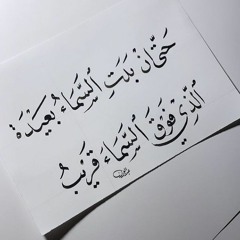 حَتّى إن بَدَتِ السَّمَاءُ بَعِيدَة
الَّذِي فَوْقَ السَّمَاءِ قَرِيبُ